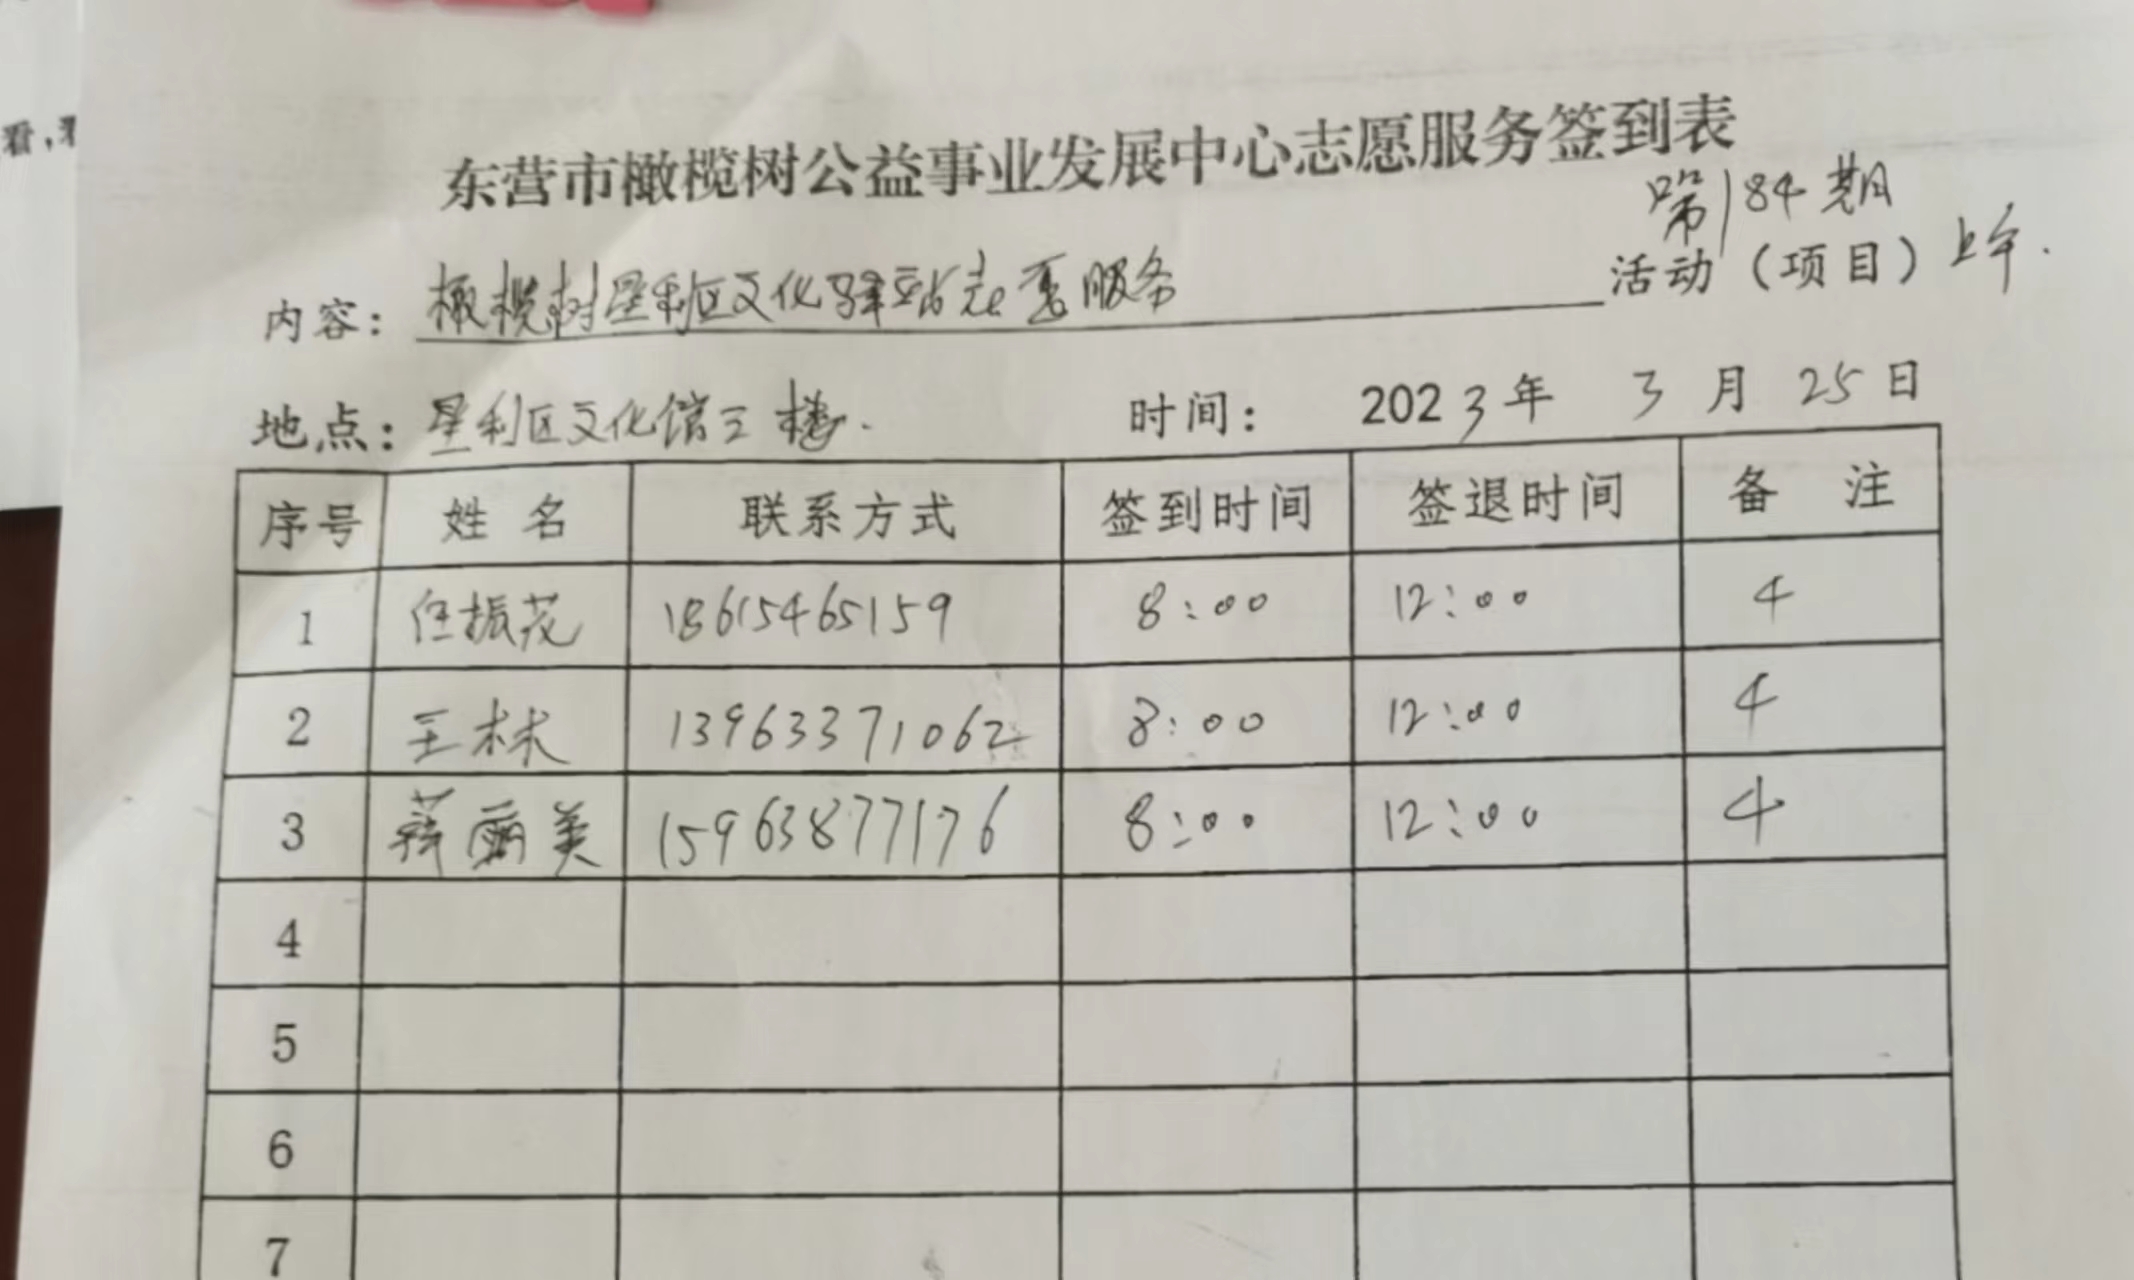 看，看
东营市橄榄树公益事业发展中心志愿服务签到表
第184期
内容：橄榄树垦利区文化驿站志愿服务 活动（项目）上午.
地点：垦利区文化馆三楼. 时间： 2023年 3月 25日
序号 姓 名 联系方式 签到时间 签退时间 备 注
1 任振花 18615465159 8:00 12:00 4
2 王林 13963371062 8:00 12:00 4
3 蒋丽美 15963877176 8:00 12:00 4
4
5
6
7